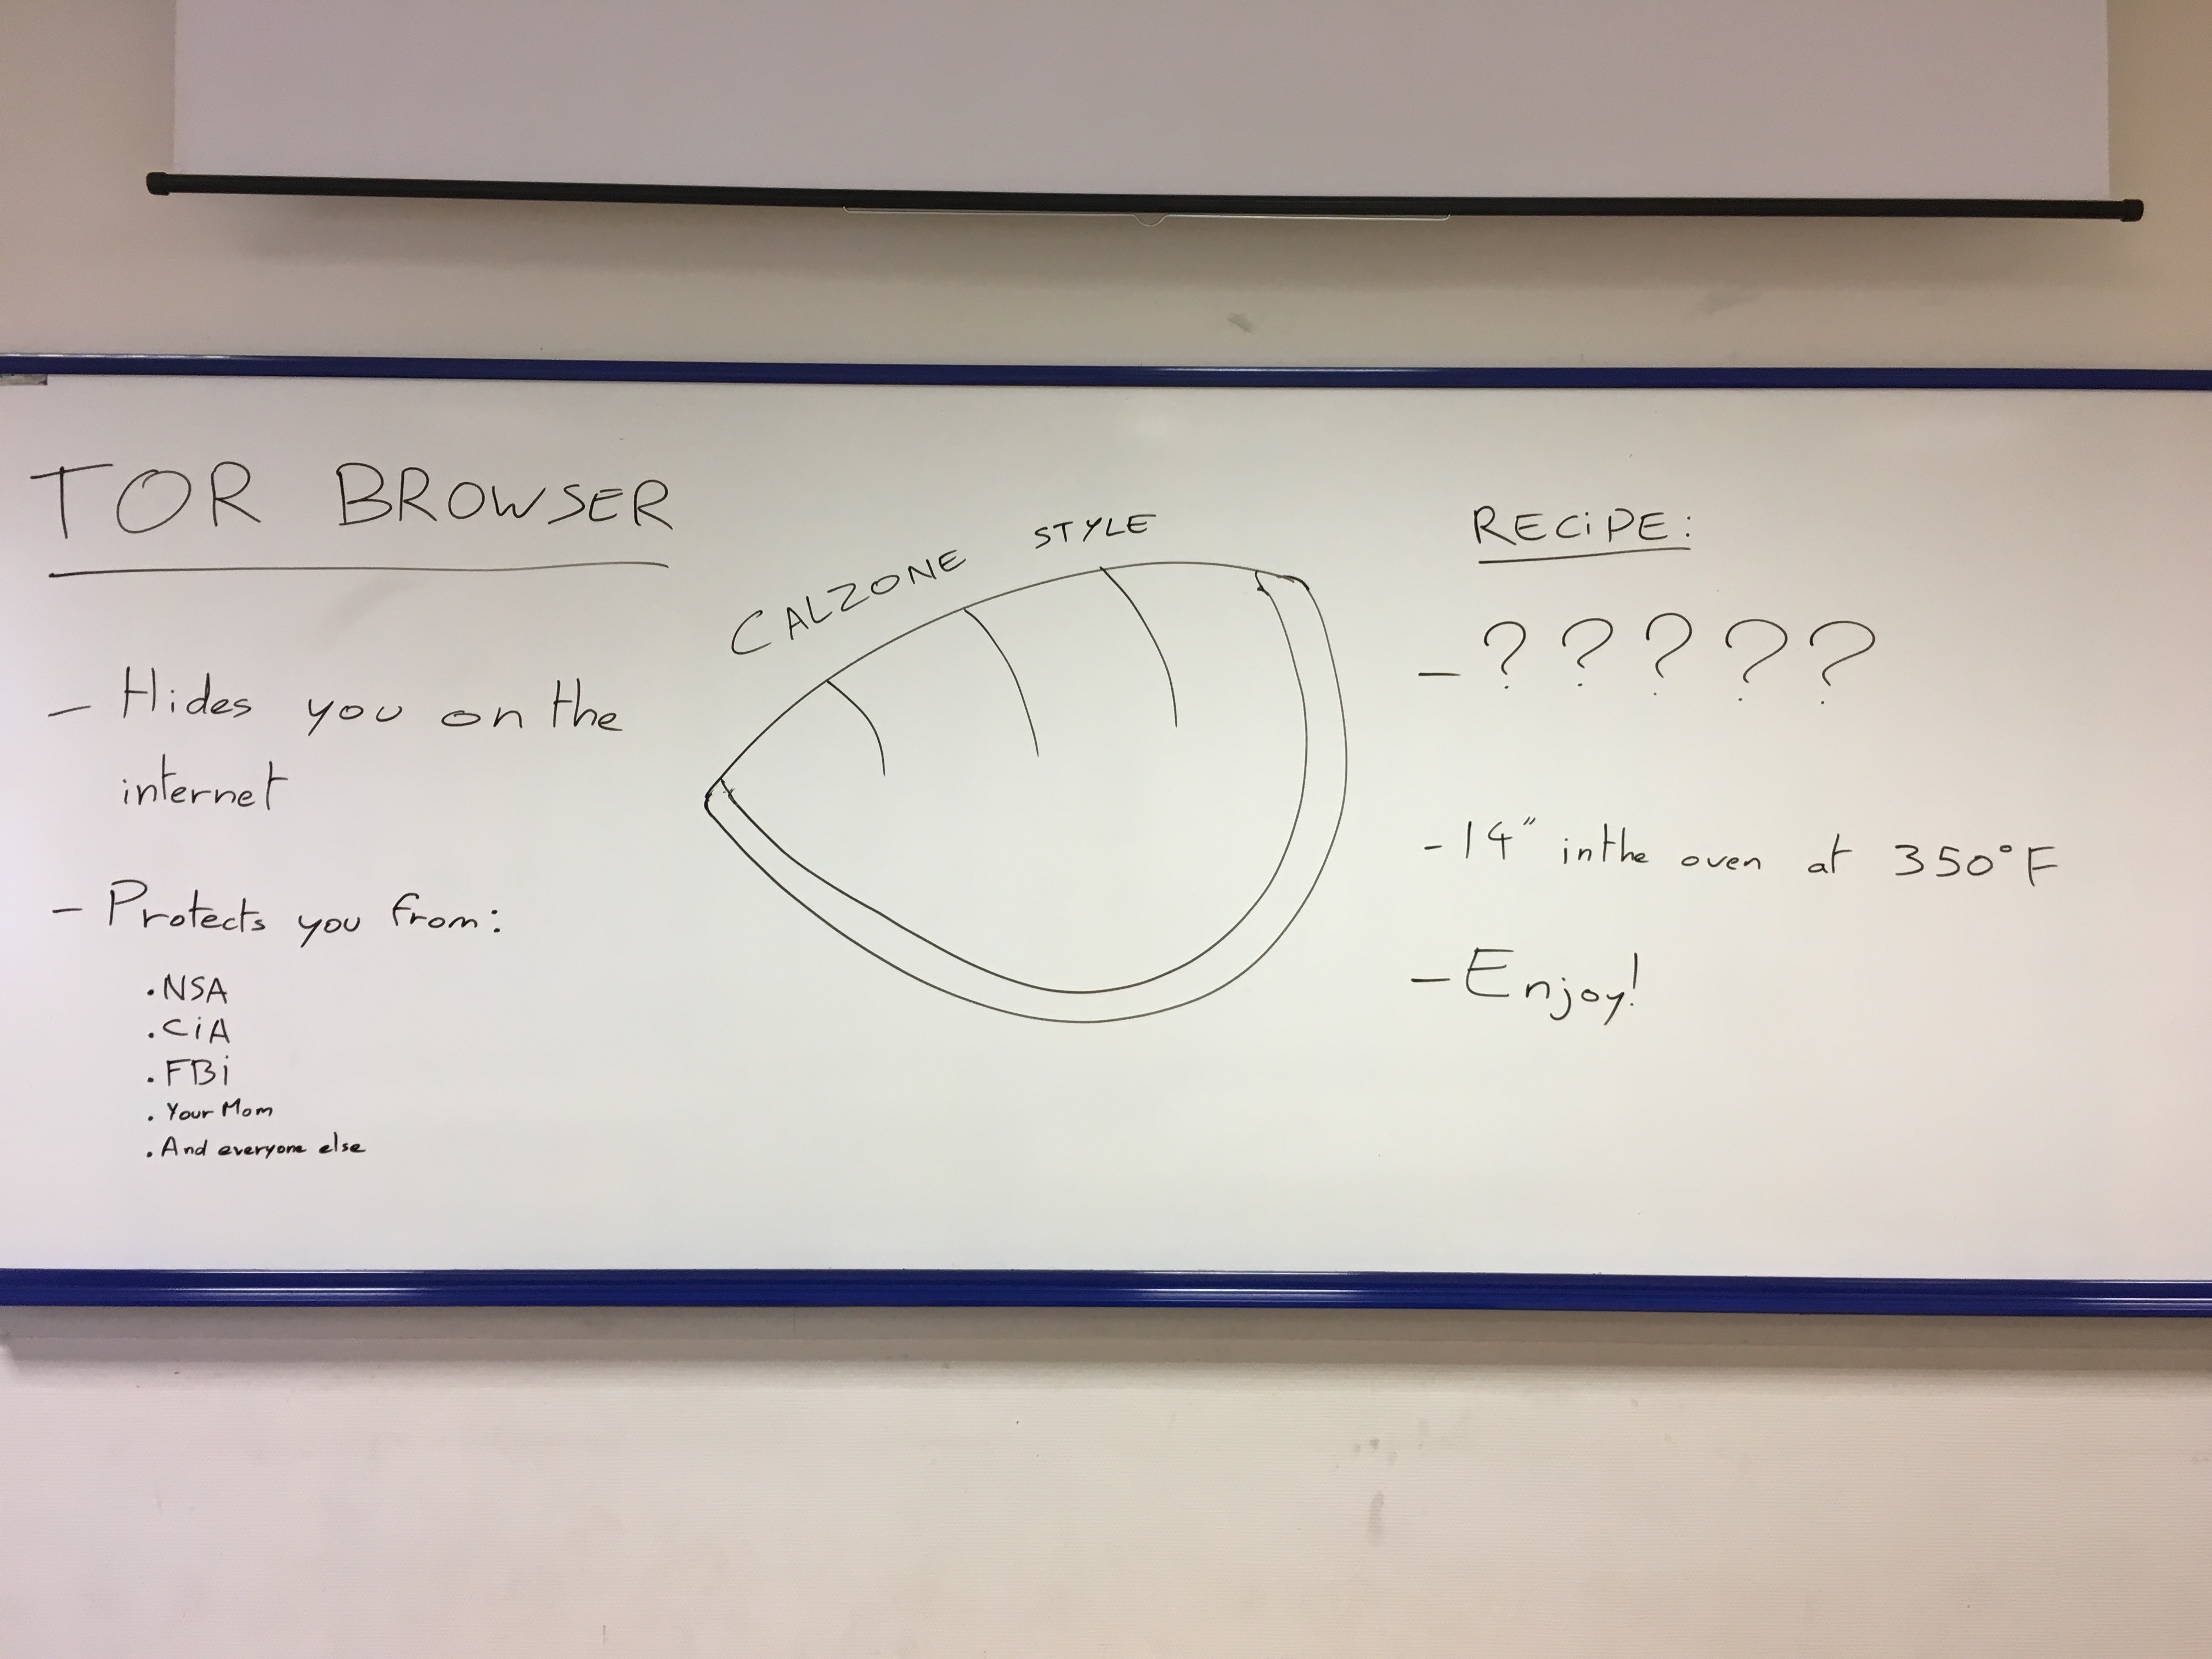 TOR BROWSER
- Hides you on the
internet
- Protects you from:
. NSA
. CiA
. FBi
. Your Mom
. And everyone else
CALZONE STYLE
RECiPE:
- ? ? ? ? ?
- 14" in the oven at 350°F
- Enjoy!